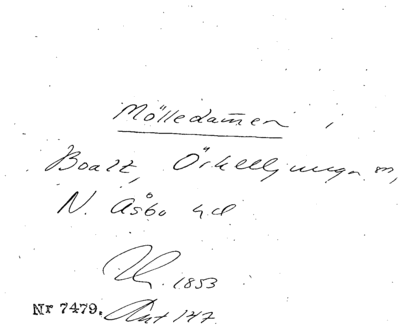 Mölledammen,
Boalt, Örkelljunga sn,
N. Åsbo hd
1853
Nr 7479. Ant 147